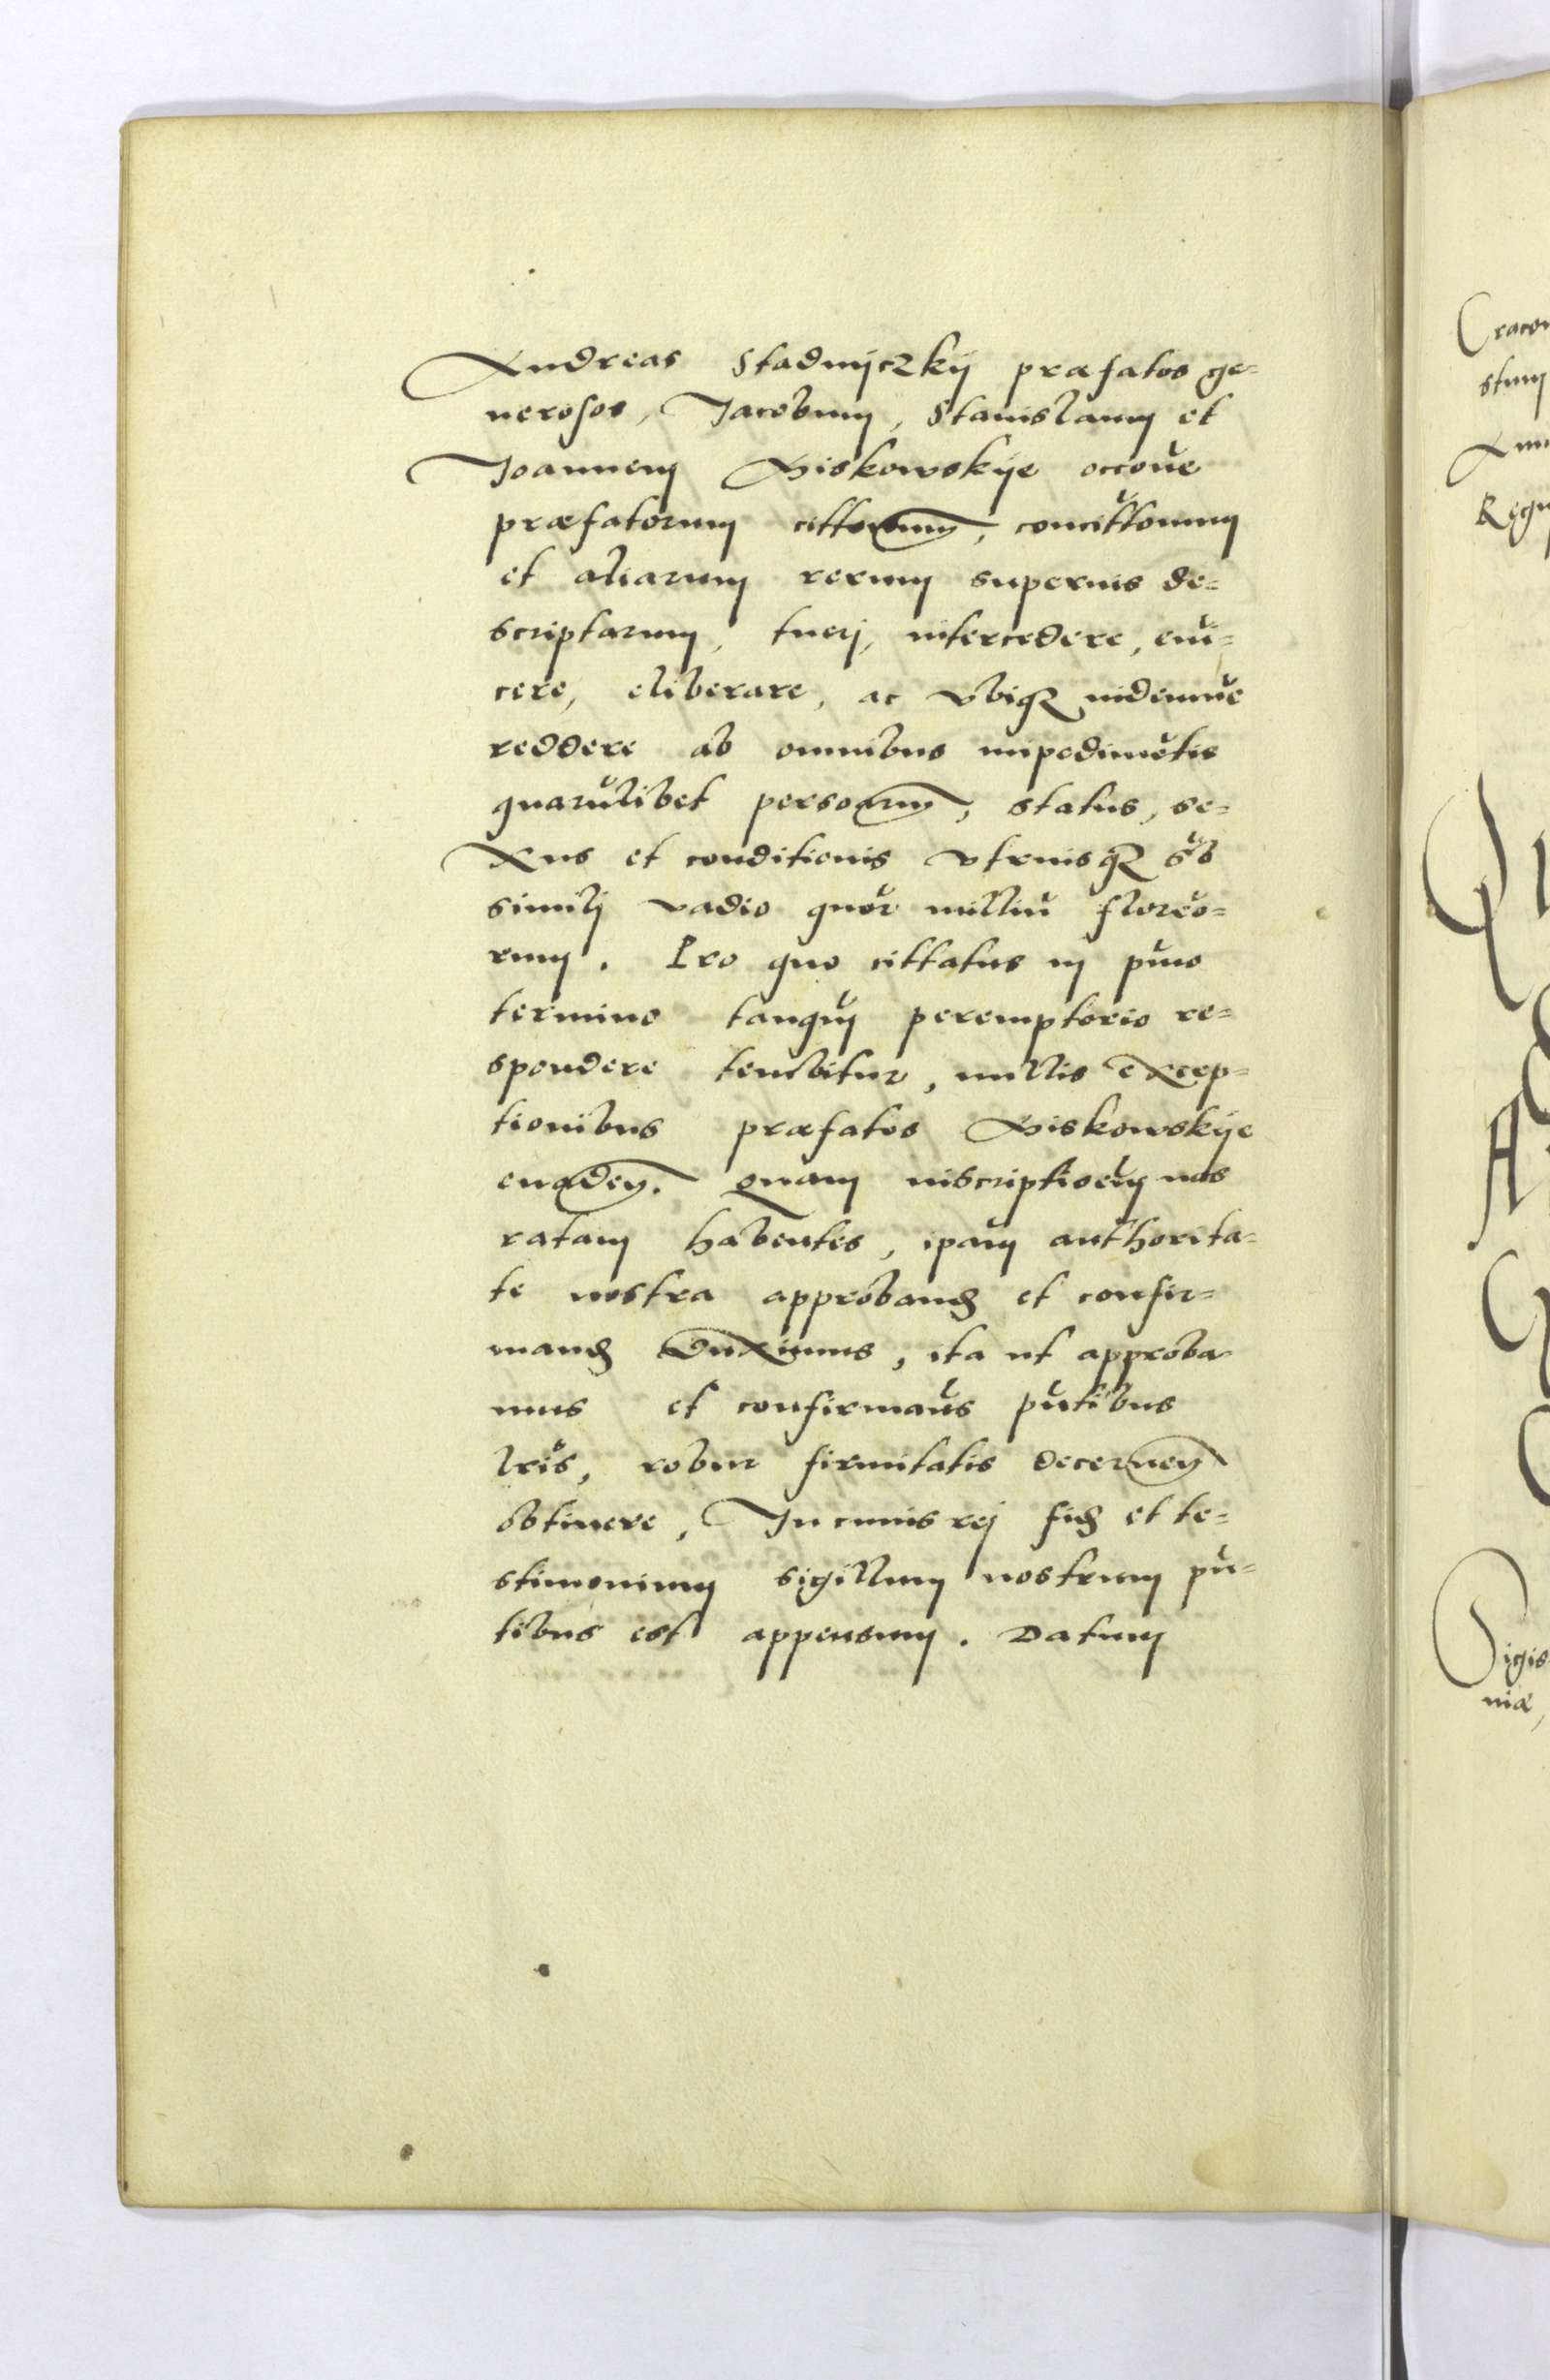 Andreas Stadnÿczkÿ præfatos ge=
nerosos, Jacobum, Stanislaum et
Joannem Siskowskÿe occoẽ
præfatorum cittonum, concittonum
et aliarum rerum superius de=
scriptarum, tuerj, intercedere, evi=
cere, eliberare, ac vbiqꝫ indemnẽ
reddere ab omnibus impedimẽtis
quarũlibet personarum, status, se=
xus et conditionis vtriusqꝫ sub
similj vadio quor milliũ florẽo=
rum. Pro quo cittatus in pũo
termino tanqũ peremptorio re=
spondere tenebitur, nullis excep=
tionibus præfatos Siskowskÿe
evaden. Quam inscriptioẽm nos
ratam habentes, ipãm authorita=
te nostra approband et confir=
mand duximus, ita ut approba
mus et confirmãus pñtibus
lr̃is, robur firmitatis decernen
obtinere, In cuius rej fid et te=
stimonium sigillum nostrum pñ=
tibus est appensum. Datum
Cracov
Sigis
niæ,